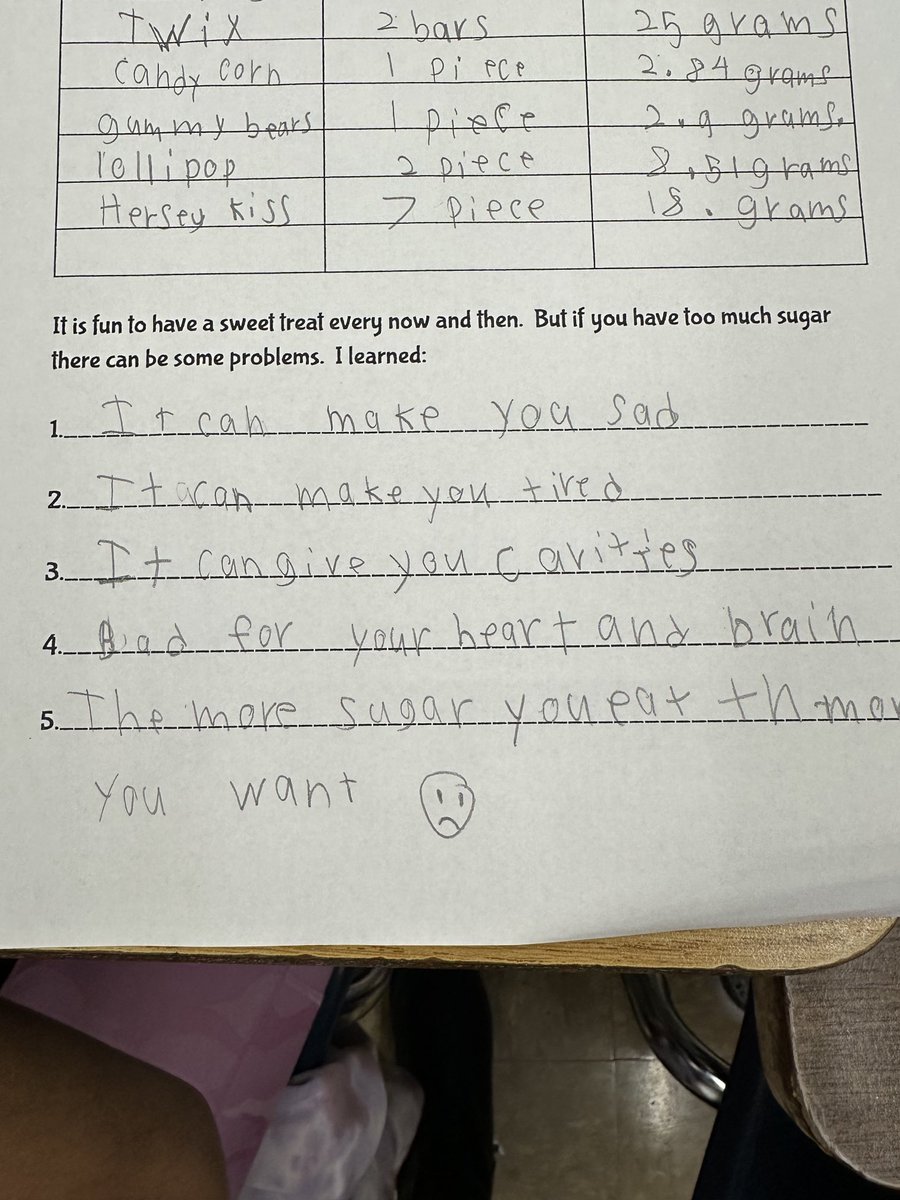 Twix 2 bars 25 grams
candy corn 1 piece 2.84 grams
gummy bears 1 piece 2.9 grams.
lollipop 2 piece 8.51grams
Hersey kiss 7 piece 18. grams
It is fun to have a sweet treat every now and then. But if you have too much sugar
there can be some problems. I learned:
1. It can make you sad
2. It can make you tired
3. It can give you cavitties
4. Bad for your heart and brain
5. The more sugar you eat th mor
you want